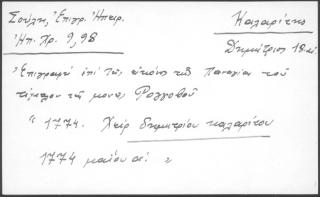 Σούλη, Ἐπιγρ. Ἠπειρ.
Ἠπ. Χρ. 9, 98
Καλαρίτης
Δημήτριος 18 αἰ.
Ἐπιγραφή ἐπί τῆς εἰκόνος τῆς Παναγίας τοῦ
τέμπλου τῆς μονῆς Ρογγοβοῦ
" 1774. Χείρ δημητρίου καλαρίτου
1774 μαΐου αἱ "